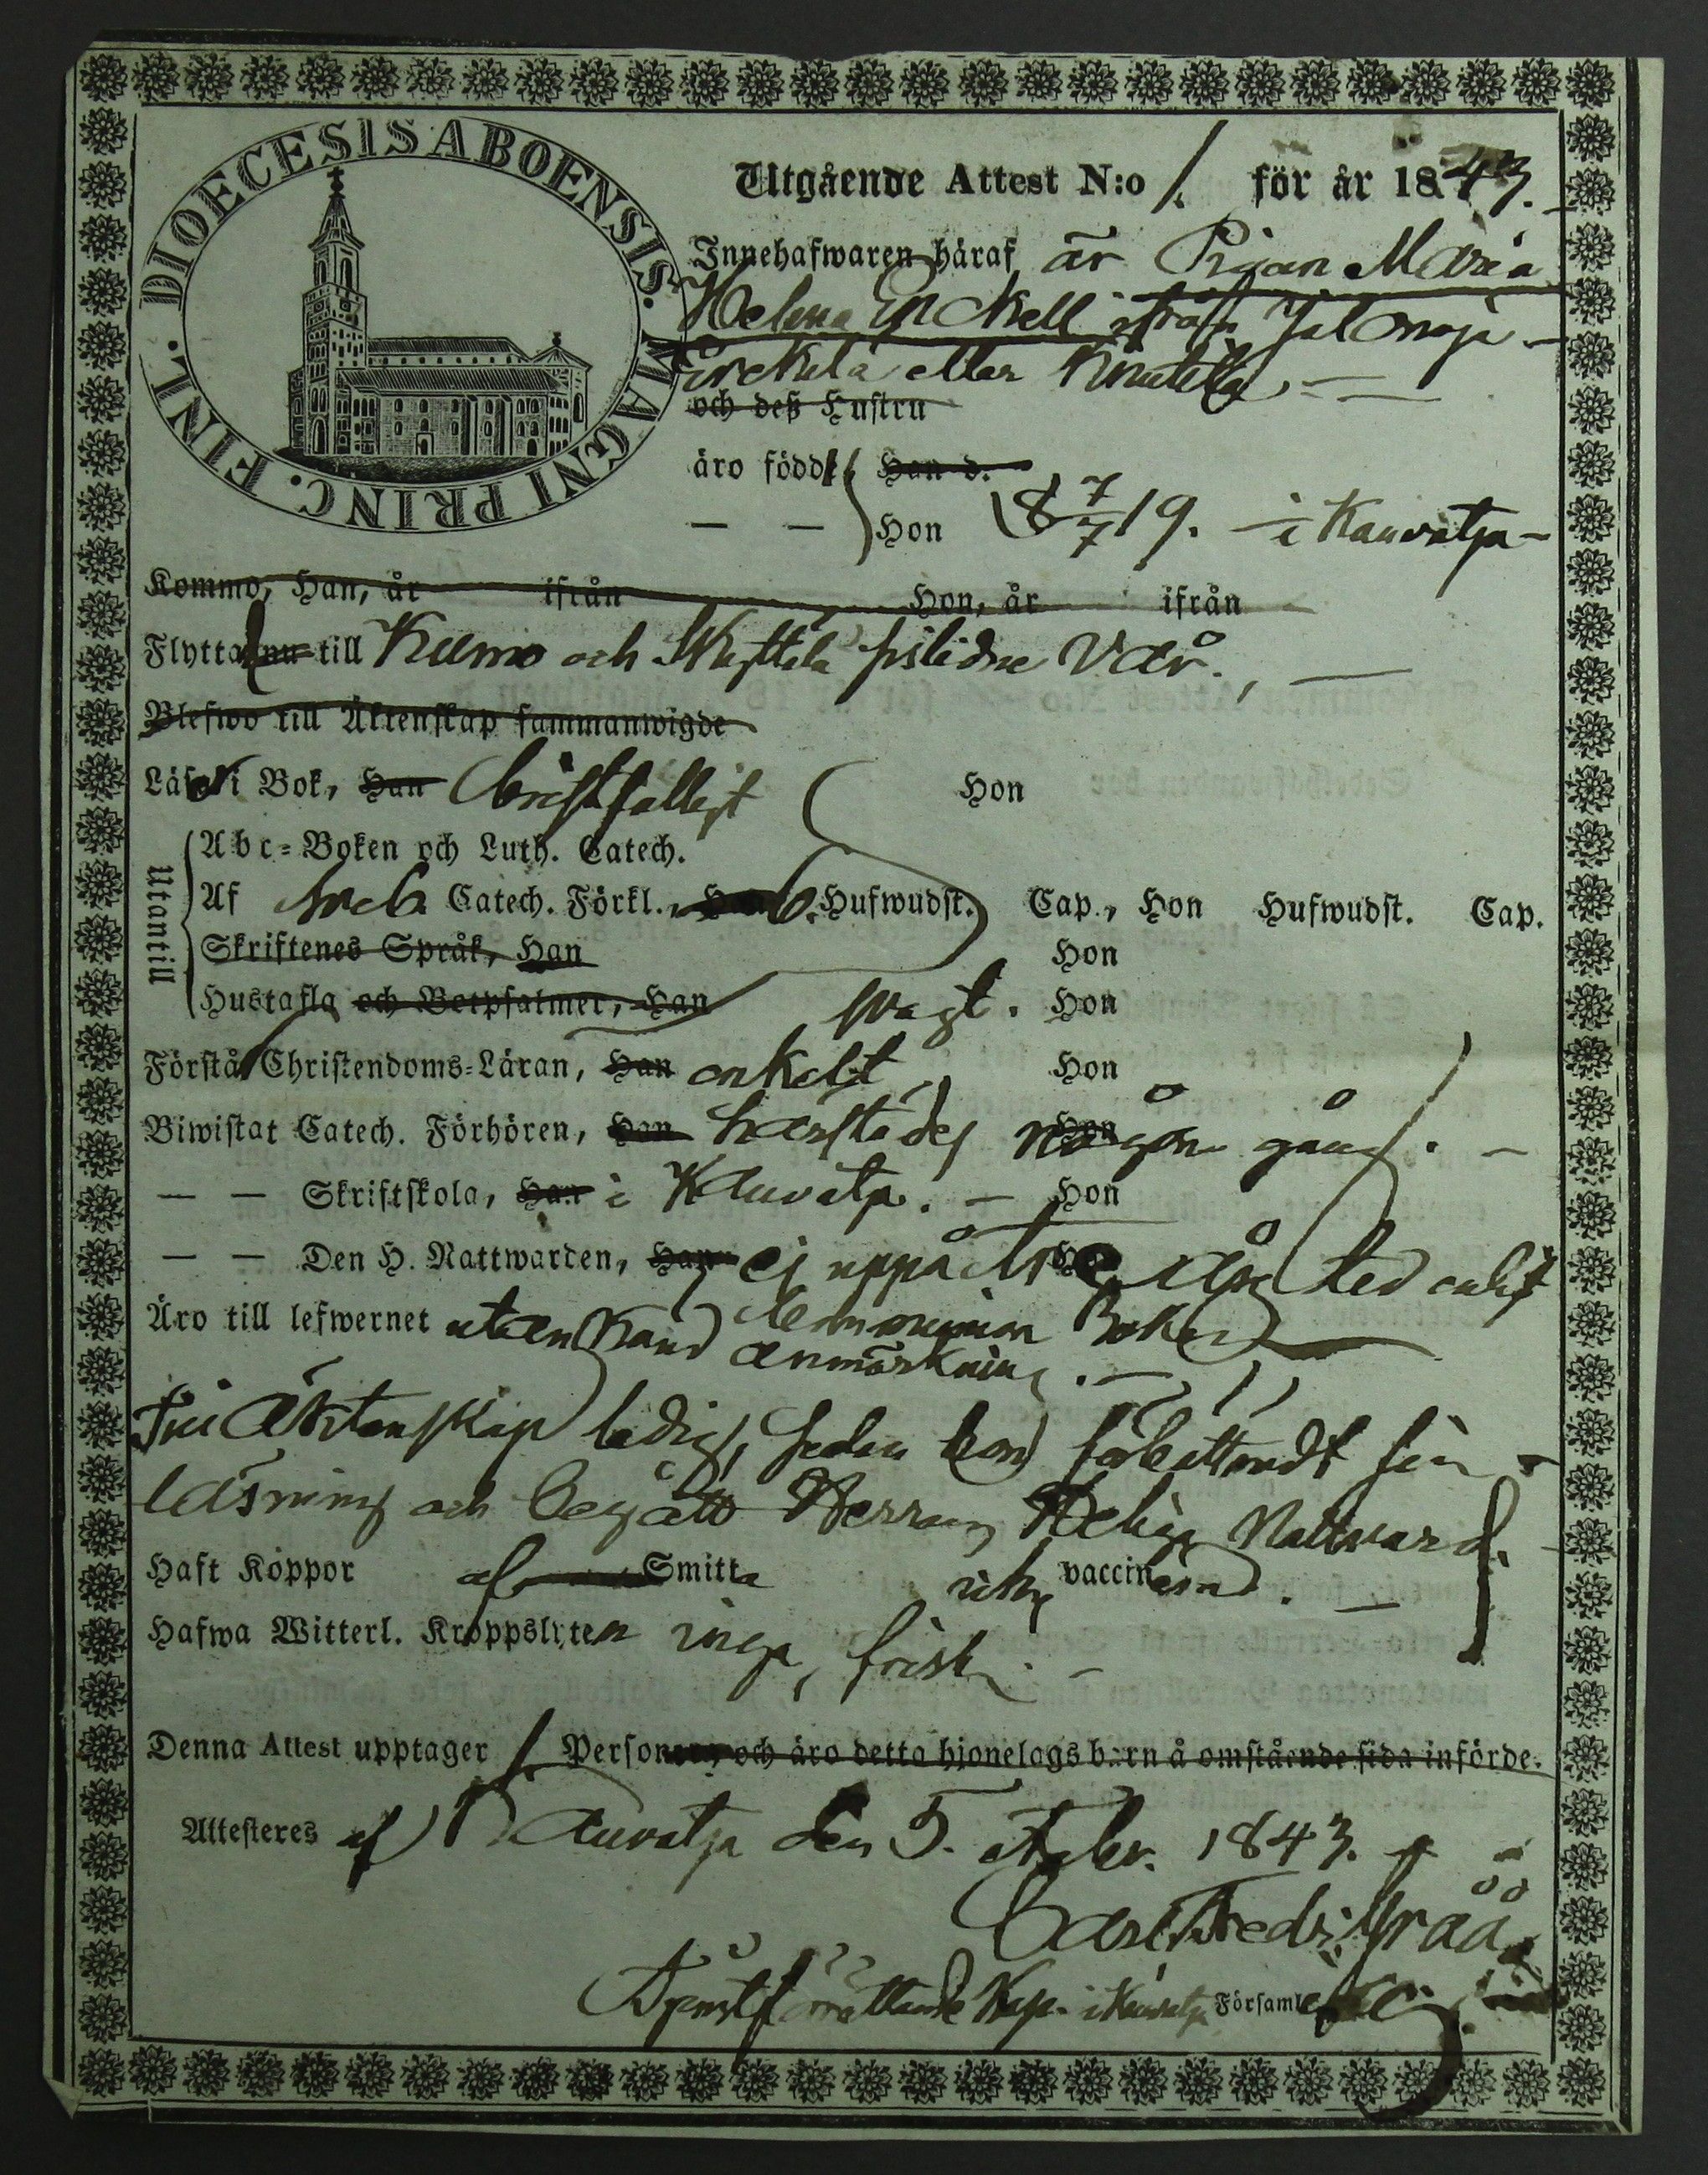 DIOECESIS ABOENSIS. MAGNI PRINC. FINL.
Utgående Attest N:o 1. för år 1843.
Innehafwaren häraf är Pigan Maria
Helena Enckell ifrån Jalonoja
eller
och deß Hustru
äro född Han d.
— — Hon 18 7/7 19. i Kauvatsa
Kommo, Han, år ifrån Hon, år ifrån
Flyttar nu till Kumo och sistlidne Vår.
Blefwo till Äktenskap sammanwigde
Läser i Bok, Han bristfälligt Hon
Utantill
Abc-Boken och Luth. Catech.
Af Sveb. Catech. Förkl., Han 6. Hufwudst. Cap., Hon Hufwudst. Cap.
Skriftenes Språk, Han Hon
Hustafla och Botpsalmer, Han svagt. Hon
Förstår Christendoms-Läran, Han enkelt Hon
Biwistat Catech. Förhören, Han någon gång. Hon
— — Skriftskola, Han i Kauvatsa. Hon
— — Den H. Nattwarden, Han ej uppå enligt
Communion Boken
Äro till lefwernet utan känd anmärkning.
Till Äktenskap ledig, sedan hon förbättradt sin
läsning och begått Herrans Heliga Nattvard.
Haft Koppor af Smitta vaccin
Hafwa Witterl. Kroppslyten inga, frisk.
Denna Attest upptager 1 Personer, och äro detta hjonelags barn å omstående sida införde.
Attesteres af Kauvatsa den 5. 1843.
Carl Fredr. Gråå
Tjenstförrättande Kap. i Kauvatsa Församl.